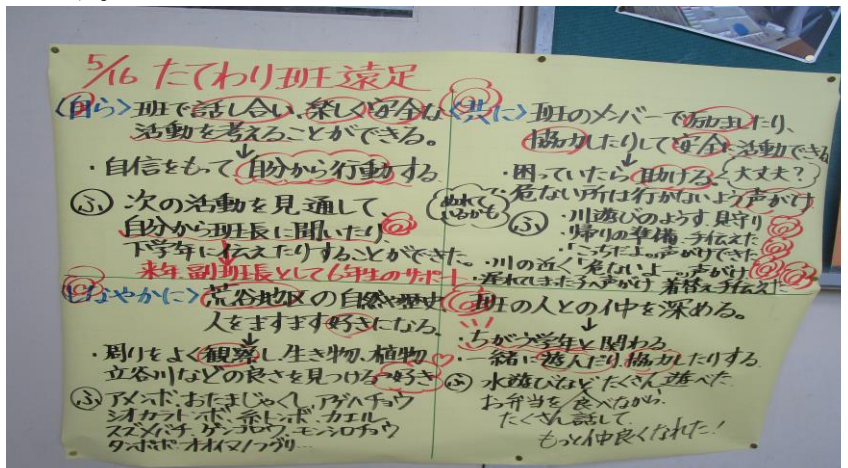 5/16 たてわり班遠足
〈自ら〉班で話し合い、楽しく安全な
活動を考えることができる。
↓
・自信をもって自分から行動する
ふ 次の活動を見通して、
自分から班長に聞いたり
下学年に伝えたりすることができた。
来年 副班長として6年生のサポート
〈共に〉班のメンバーで励ましたり、
協力したりして安全に活動できる
↓
・困っていたら助ける。 大丈夫?
・危ない所は行かないよう声がけ
ぬれて
いるかも
ふ ・川遊びのようす見守り
・帰りの準備 手伝えた
・「こっちだよ」声がけできた
・川の近く「危ないよー」声がけ
・遅れていました子へ声がけ 着替え手伝えた
〈しなやかに〉荒谷地区の自然や歴史
人をますます好きになる。
↓
・周りをよく観察し、生き物、植物
立谷川などの良さを見つける→好き
ふ アメンボ、おたまじゃくし、アゲハチョウ
シオカラトンボ、糸トンボ、カエル
スズメバチ、ゲンゴロウ、モンシロチョウ
タンポポ、オオイヌノフグリ…
班の人との仲を深める。
↓
・ちがう学年と関わる
・一緒に遊んだり協力したりする
ふ 水遊びなど たくさん遊べた
お弁当を食べながら、
たくさん話して
もっと仲良くなれた!